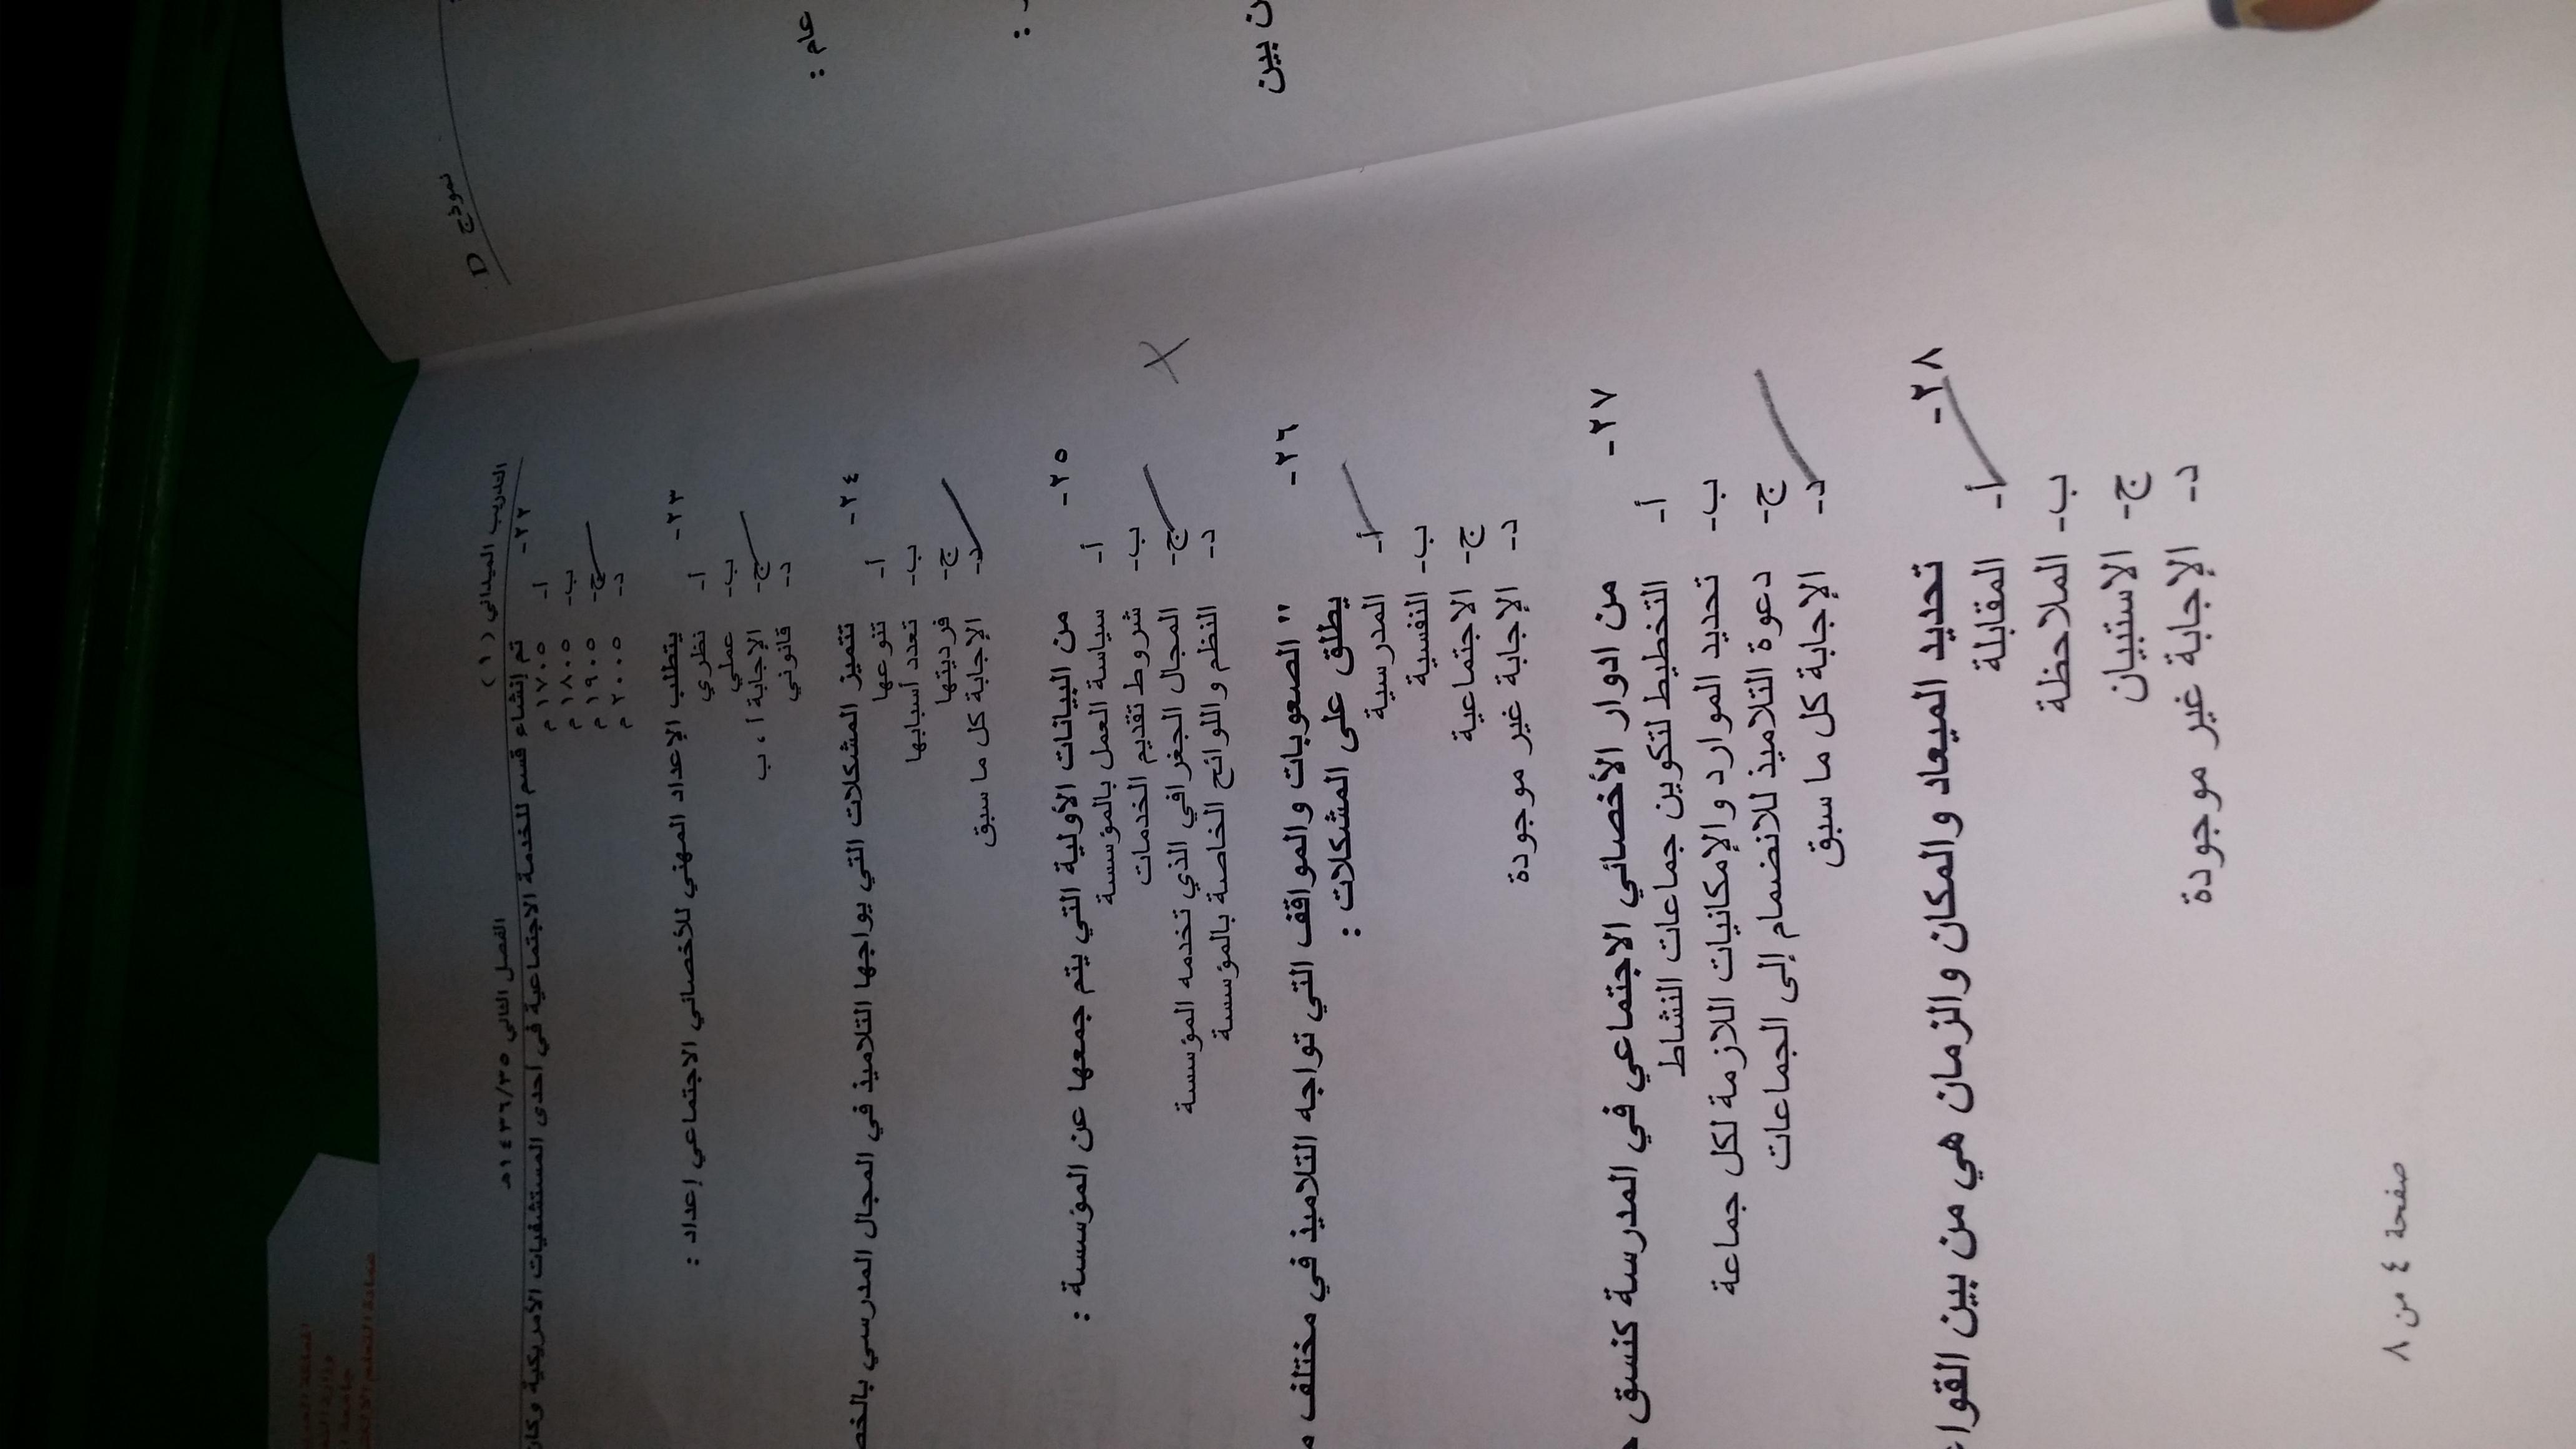 التدريب الميداني ( ١ ) الفصل الثاني ١٤٣٦/٣٥هـ
نموذج D
٢٢- تم إنشاء قسم للخدمة الاجتماعية في احدى المستشفيات الأمريكية وكان
أ- ١٧٠٥ م
ب- ١٨٠٥ م
ج- ١٩٠٥ م
د- ٢٠٠٥ م
٢٣- يتطلب الإعداد المهني للأخصائي الاجتماعي إعداد :
أ- نظري
ب- عملي
ج- الإجابة أ ، ب
د- قانوني
٢٤- تتميز المشكلات التي يواجها التلاميذ في المجال المدرسي
أ- تنوعها
ب- تعدد أسبابها
ج- فرديتها
د- الإجابة كل ما سبق
٢٥- من البيانات الأولية التي يتم جمعها عن المؤسسة :
أ- سياسة العمل بالمؤسسة
ب- شروط تقديم الخدمات
ج- المجال الجغرافي الذي تخدمه المؤسسة
د- النظم واللوائح الخاصة بالمؤسسة
٢٦- " الصعوبات والمواقف التي تواجه التلاميذ في مختلف
يطلق على المشكلات :
أ- المدرسية
ب- النفسية
ج- الاجتماعية
د- الإجابة غير موجودة
٢٧- من ادوار الأخصائي الاجتماعي في المدرسة كنسق
أ- التخطيط لتكوين جماعات النشاط
ب- تحديد الموارد والإمكانيات اللازمة لكل جماعة
ج- دعوة التلاميذ للانضمام إلى الجماعات
د- الإجابة كل ما سبق
٢٨- تحديد الميعاد والمكان والزمان هي من بين
أ- المقابلة
ب- الملاحظة
ج- الاستبيان
د- الإجابة غير موجودة
صفحة ٤ من ٨
عام :
ن بين